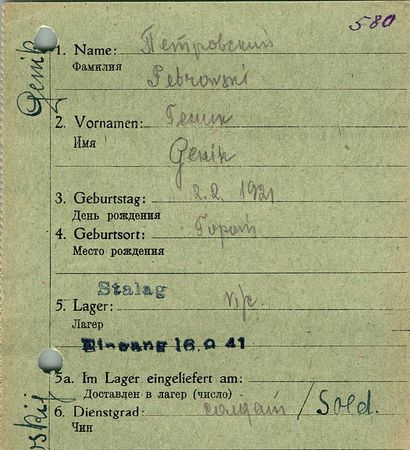 580
Genik
1. Name: Петровский
Фамилия
Petrowski
2. Vornamen: Геник
Имя
Genik
3. Geburtstag: 2.2. 1921
День рождения
4. Geburtsort:
Место рождения
Stalag
5. Lager: VI/c.
Лагер
Eingang 16.9 41
5a. Im Lager eingeliefert am:
Доставлен в лагер (число)
6. Dienstgrad: солдат / Sold.
Чин